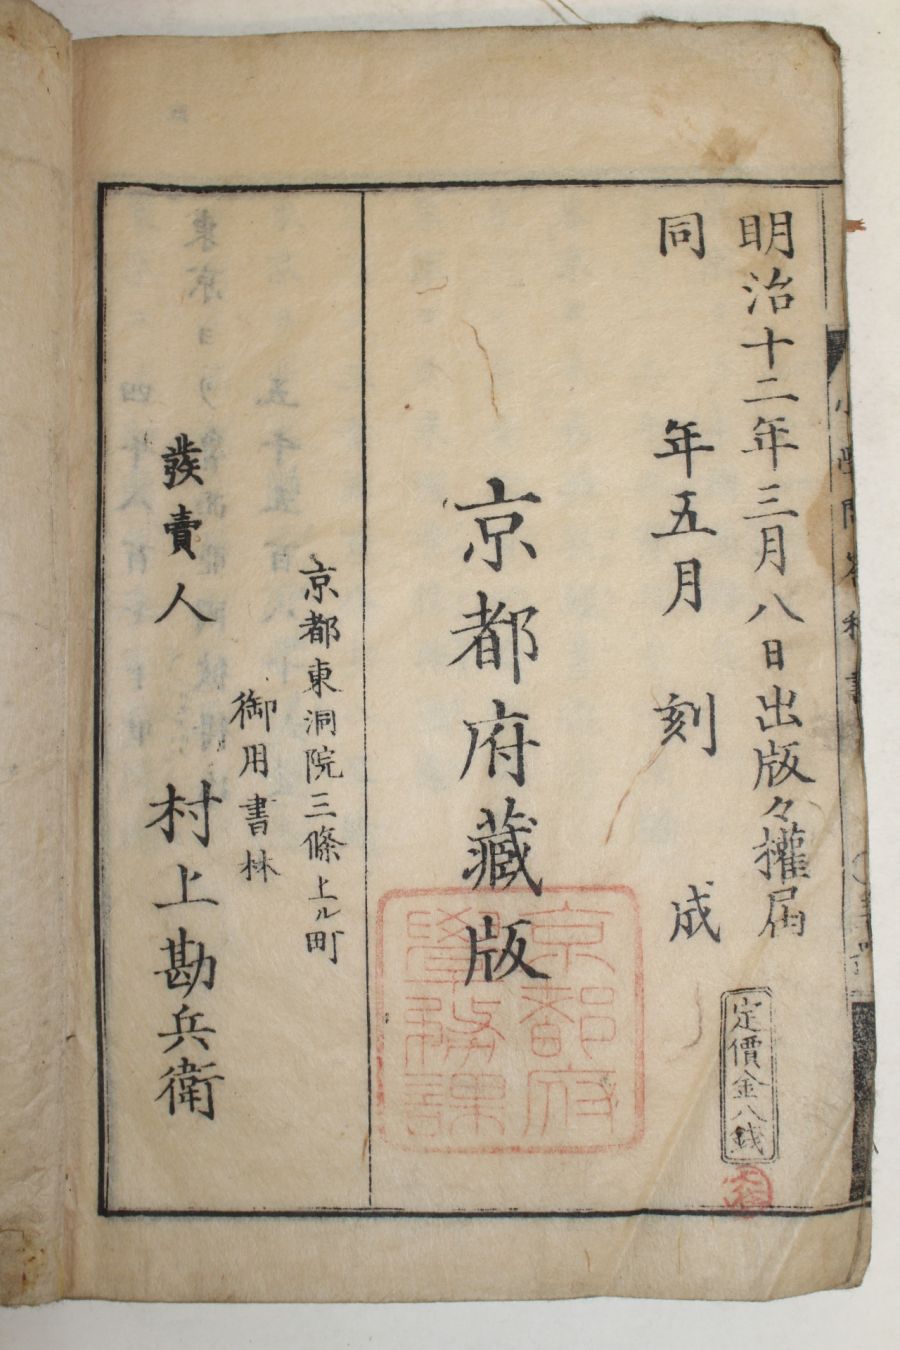 明治十二年三月八日出版々權届
定價金八銭
同年五月刻成
京都府藏版
京都府
學務課
京都東洞院三條上ル町
御用書林
發賣人 村上勘兵衛